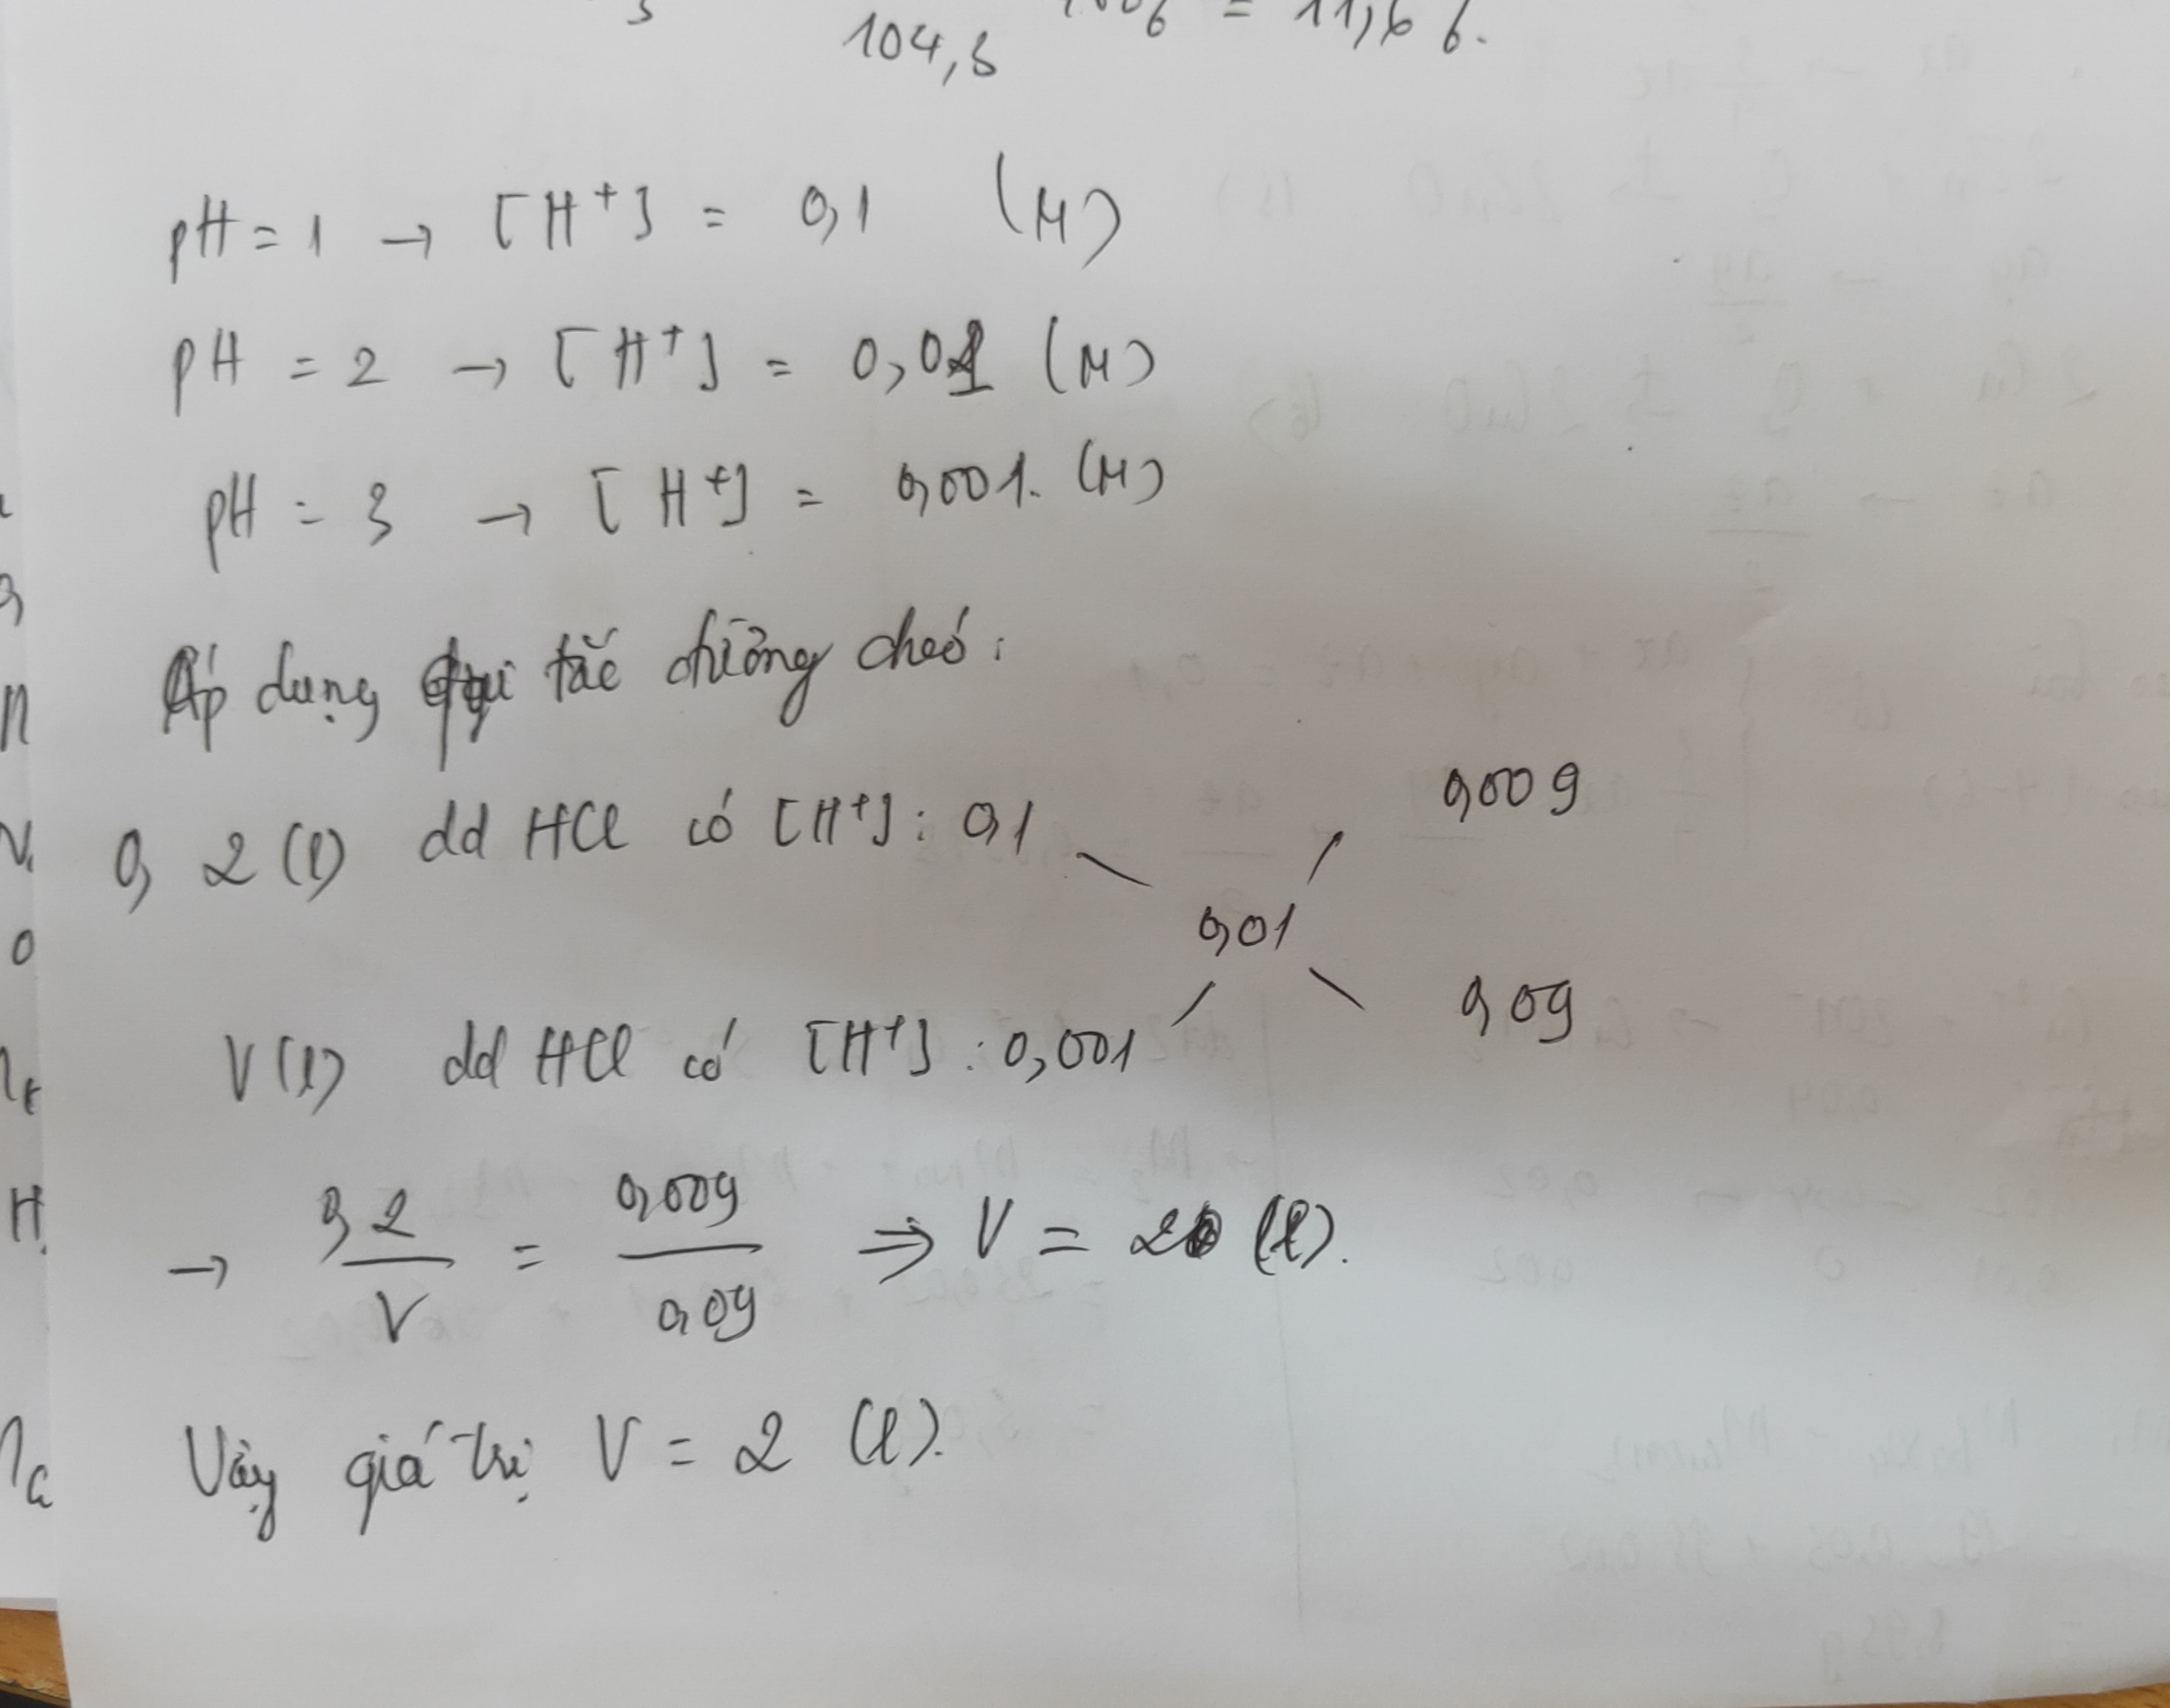 104,5 = 11,66.
pH = 1 → [H⁺] = 0,1 (M)
pH = 2 → [H⁺] = 0,01 (M)
pH = 3 → [H⁺] = 0,001. (M)
Áp dụng qui tắc đường chéo:
0,009
0,2 (l) dd HCl có [H⁺]: 0,1
0,01
V(l) dd HCl có [H⁺]: 0,001 0,09
→ 0,2/V = 0,009/0,09 ⇒ V = 2 (l).
Vậy giá trị V = 2 (l).